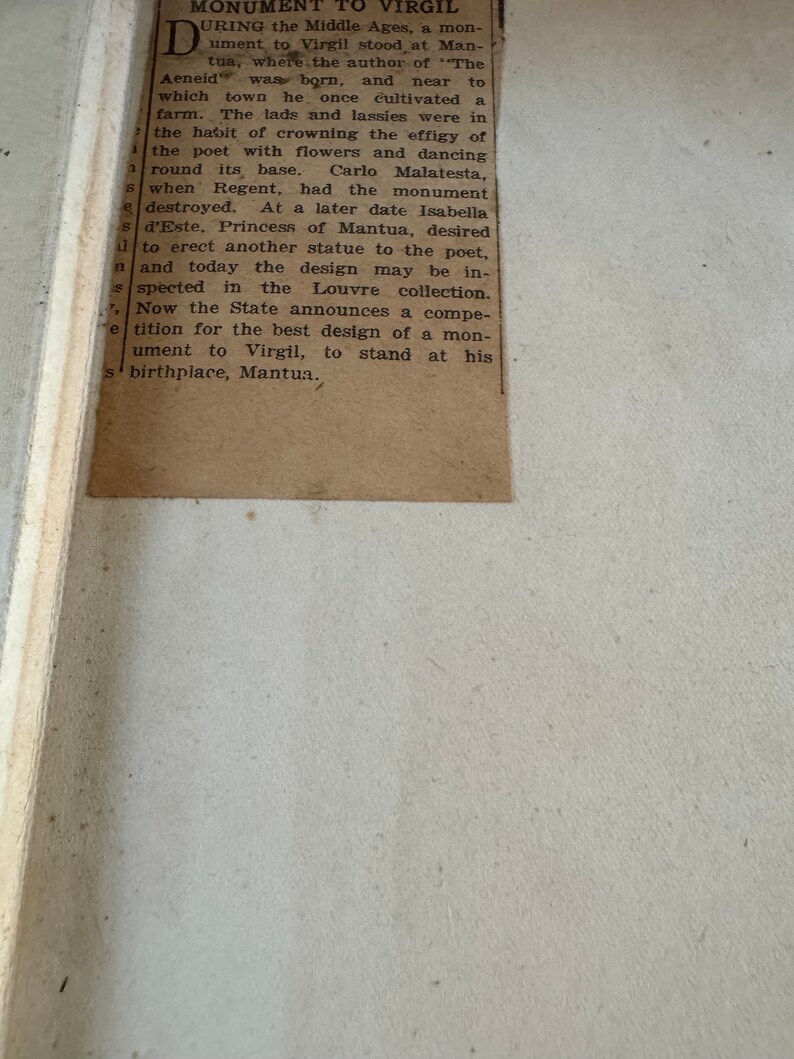 MONUMENT TO VIRGIL
DURING the Middle Ages, a mon-
ument to Virgil stood at Man-
tua, where the author of "The
Aeneid" was born, and near to
which town he once cultivated a
farm. The lads and lassies were in
the habit of crowning the effigy of
the poet with flowers and dancing
round its base. Carlo Malatesta,
when Regent, had the monument
destroyed. At a later date Isabella
d'Este, Princess of Mantua, desired
to erect another statue to the poet,
and today the design may be in-
spected in the Louvre collection.
Now the State announces a compe-
tition for the best design of a mon-
ument to Virgil, to stand at his
birthplace, Mantua.